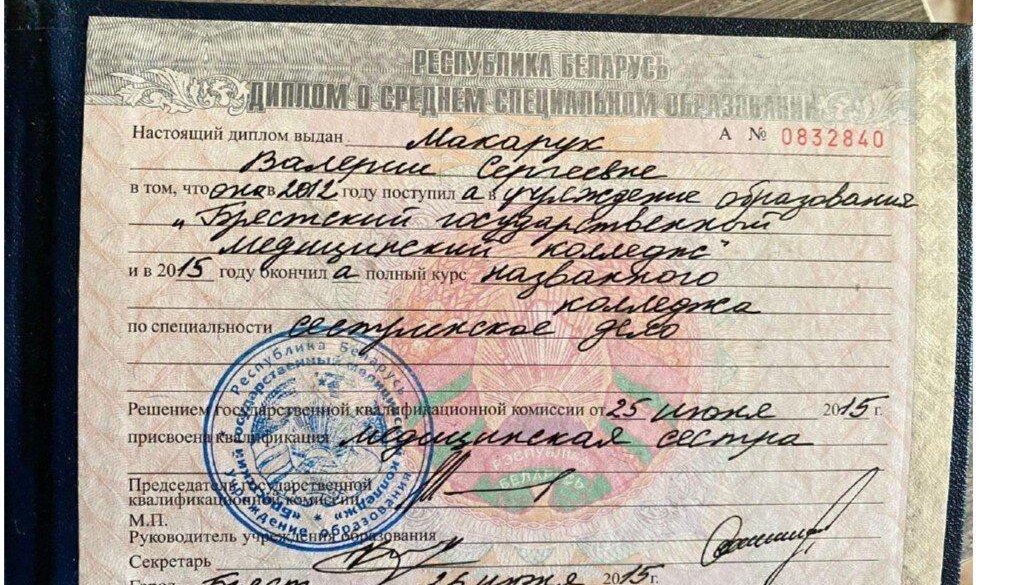 РЕСПУБЛИКА БЕЛАРУСЬ
ДИПЛОМ О СРЕДНЕМ СПЕЦИАЛЬНОМ ОБРАЗОВАНИИ
Настоящий диплом выдан Макарук А № 0832840
Валерии Сергеевне
в том, что она в 2012 году поступил а в учреждение образования
„Брестский государственный
медицинский колледж"
и в 2015 году окончил а полный курс названного
колледжа
по специальности сестринское дело
Решением государственной квалификационной комиссии от 25 июня 2015 г.
присвоена квалификация медицинская сестра
Председатель государственной
квалификационной комиссии
М.П.
Руководитель учреждения образования
Секретарь
Город Брест 26 июня 2015г.
Республика Беларусь
государственный медицинский колледж»
Учреждение образования
РЕСПУБЛИКА
БЕЛАРУСЬ